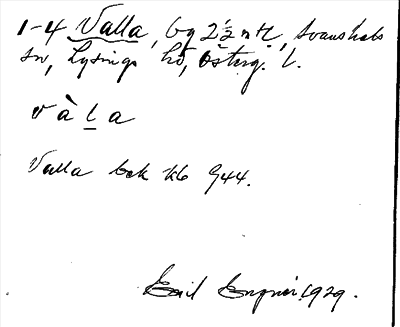 1-4 Valla, by 2½ mtl, Svanshals
sn, Lysings hd, Österg. l.
v à l a
Valla bek kb 944.
Emil 1929.